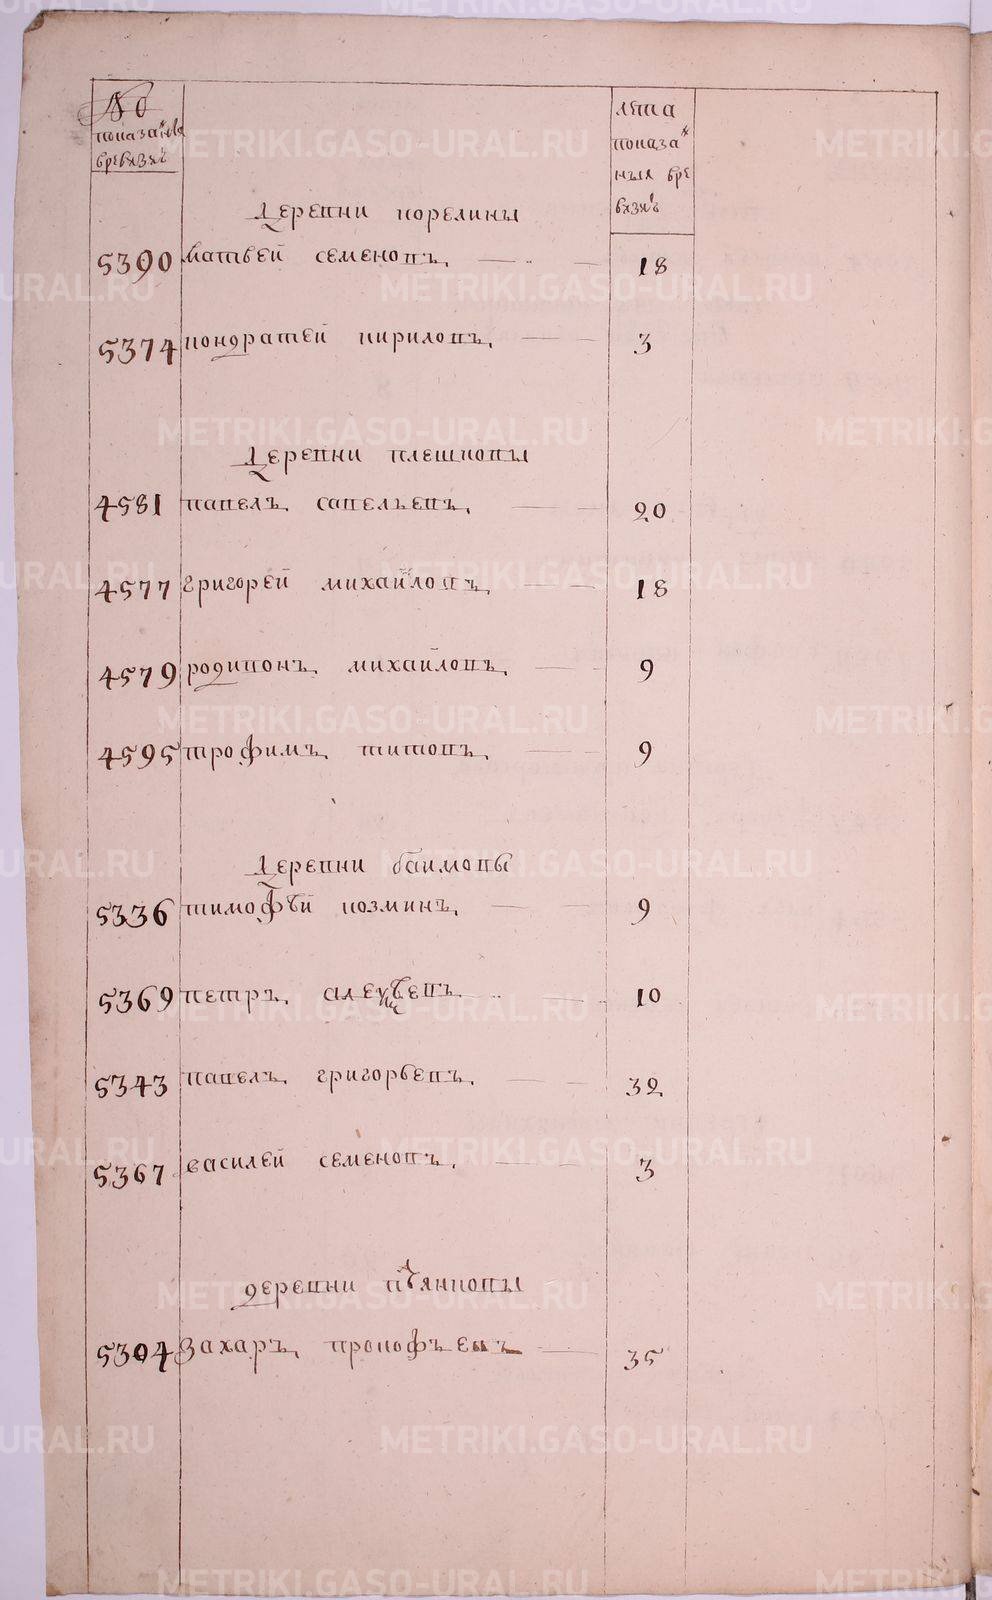 №
показа
лѣта
показа
ныя вре
деревни корелины
5390 матвей семеновъ. 18
5374 кондратей кириловъ. 3
деревни плешковы
4581 павелъ. савельевъ. 20
4577 григорей михайловъ. 18
4579 родивонъ. михайловъ. 9
4595 трофимъ. титовъ. 9
деревни баимовы
5336 тимофѣй козминъ. 9
5369 петръ. алексѣевъ. 10
5343 павелъ. григорьевъ. 32
5367 василей семеновъ. 3
деревни пьянковы
5304 захаръ. прокофьевъ 35
METRIKI.GASO-URAL.RU